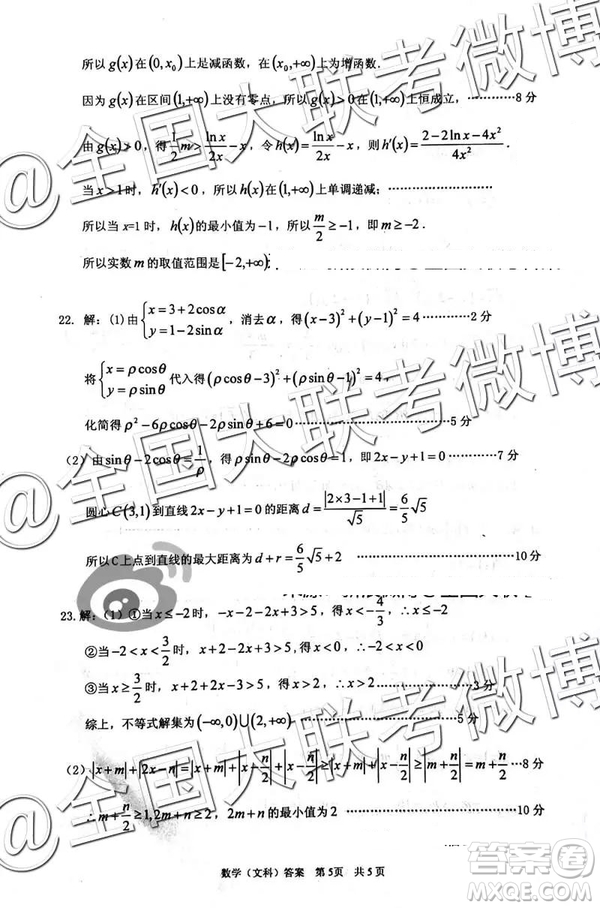 所以g(x)在(0,x₀)上是减函数，在(x₀,+∞)上为增函数.
因为g(x)在区间(1,+∞)上没有零点，所以g(x)>0在(1,+∞)上恒成立，············8分
由g(x)>0，得 1/2 m > lnx/2x - x，令h(x)= lnx/2x - x，则h′(x)= (2-2lnx-4x²)/4x².
当x>1时，h′(x)<0，所以h(x)在(1,+∞)上单调递减；
所以当x=1时，h(x)的最小值为-1，所以 m/2 ≥ -1，即m≥-2.
所以实数m的取值范围是[-2,+∞)
22. 解：(1)由{x=3+2cosα, y=1-2sinα，消去α，得(x-3)²+(y-1)²=4 ············2分
将{x=ρcosθ, y=ρsinθ代入得(ρcosθ-3)²+(ρsinθ-1)²=4，
化简得ρ²-6ρcosθ-2ρsinθ+6=0 ··················5分
(2)由sinθ-2cosθ=1/ρ，得ρsinθ-2ρcosθ=1，即2x-y+1=0 ············7分
圆心C(3,1)到直线2x-y+1=0的距离d= |2×3-1+1|/√5 = 6/5 √5
所以C上点到直线的最大距离为d+r= 6/5 √5+2 ··················10分
23. 解：(1)①当x≤-2时，-x-2-2x+3>5，得x<-4/3，∴x≤-2
②当-2<x<3/2时，x+2-2x+3>5，得x<0，∴-2<x<0
③当x≥3/2时，x+2+2x-3>5，得x>2，∴x>2 ············3分
综上，不等式解集为(-∞,0)∪(2,+∞) ············5分
(2)|x+m|+|2x-n|=|x+m|+|x-n/2|+|x-n/2|≥|x+m|+|x-n/2|≥|m+n/2|=m+n/2 ···8分
∴m+n/2≥1,2m+n≥2，2m+n的最小值为2 ··················10分
数学（文科）答案 第5页 共5页
@全国大联考微博
@全国大联考微博
@全国大联考微博
答案圈
MXQE.COM